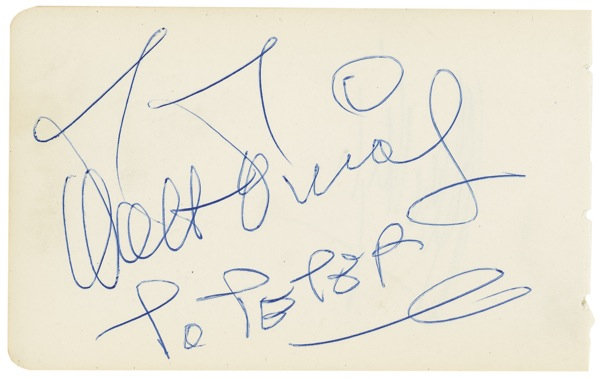 Walt Disney
To PETER